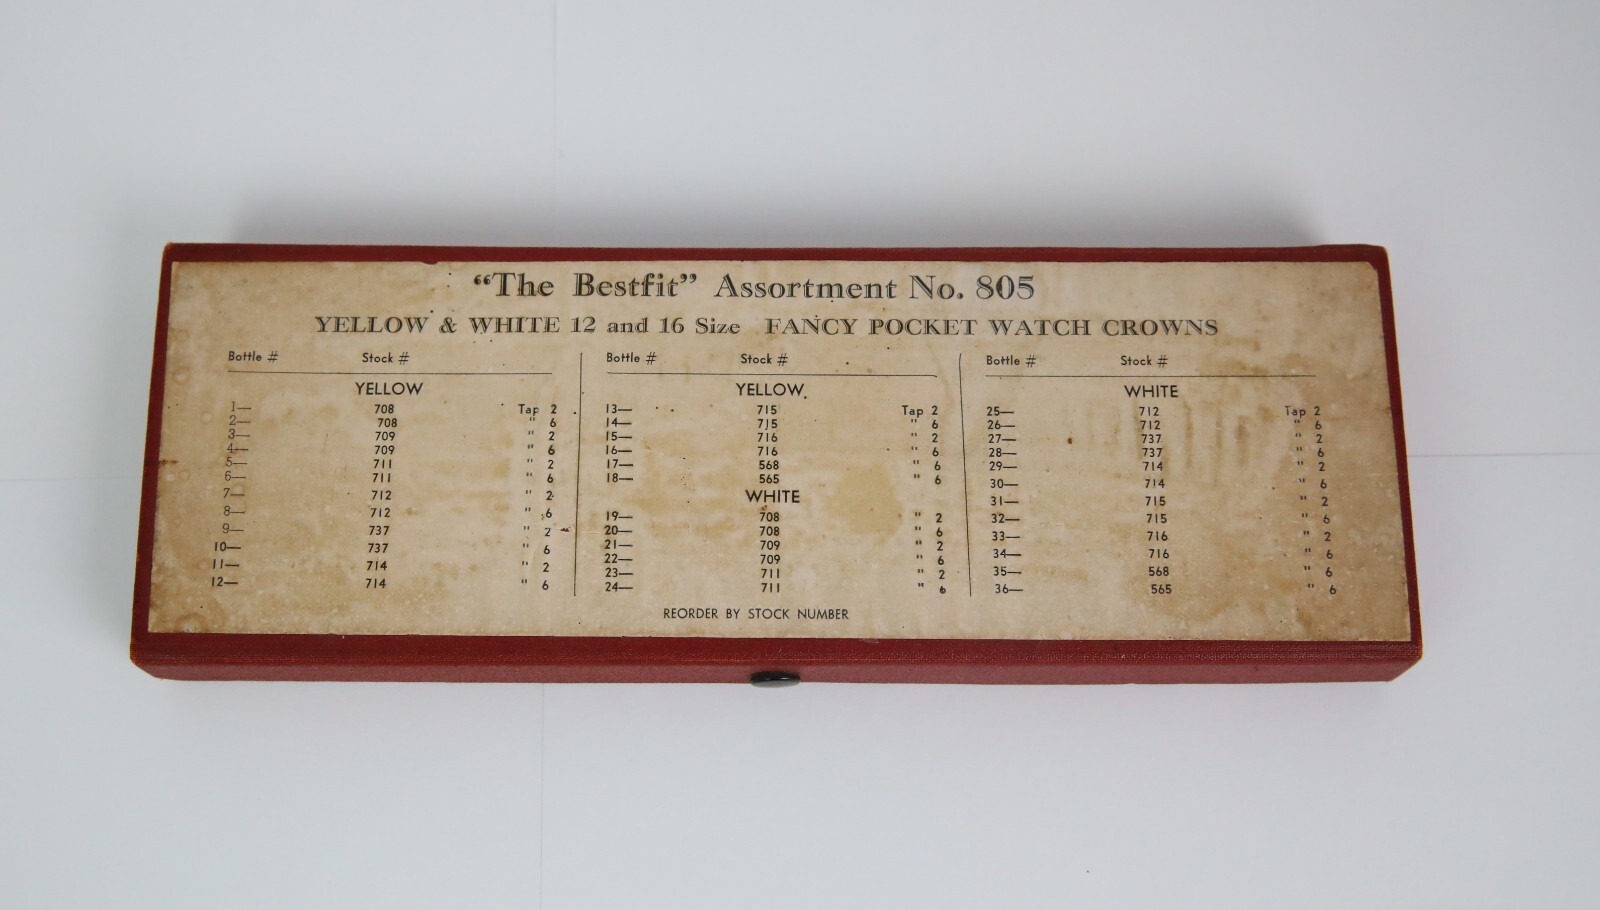 “The Bestfit” Assortment No. 805
YELLOW & WHITE 12 and 16 Size FANCY POCKET WATCH CROWNS
Bottle # Stock #
YELLOW
1— 708 Tap 2
2— 708 " 6
3— 709 " 2
4— 709 " 6
5— 711 " 2
6— 711 " 6
7— 712 " 2
8— 712 " 6
9— 737 " 2
10— 737 " 6
11— 714 " 2
12— 714 " 6
Bottle # Stock #
YELLOW
13— 715 Tap 2
14— 715 " 6
15— 716 " 2
16— 716 " 6
17— 568 " 6
18— 565 " 6
WHITE
19— 708 " 2
20— 708 " 6
21— 709 " 2
22— 709 " 6
23— 711 " 2
24— 711 " 6
Bottle # Stock #
WHITE
25— 712 Tap 2
26— 712 " 6
27— 737 " 2
28— 737 " 6
29— 714 " 2
30— 714 " 6
31— 715 " 2
32— 715 " 6
33— 716 " 2
34— 716 " 6
35— 568 " 6
36— 565 " 6
REORDER BY STOCK NUMBER